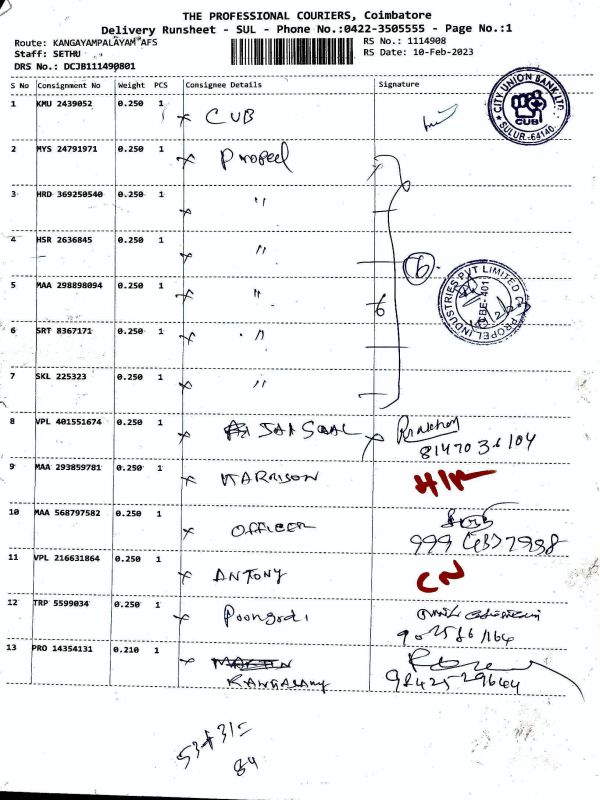 THE PROFESSIONAL COURIERS, Coimbatore
Delivery Runsheet - SUL - Phone No.:0422-3505555 - Page No.:1
Route: KANGAYAMPALAYAM AFS
RS No.: 1114908
Staff: SETHU
RS Date: 10-Feb-2023
DRS No.: DCJB111490801
S No Consignment No Weight PCS Consignee Details Signature
1 KMU 2439052 0.250 1 CUB
CITY UNION BANK LTD. CUB SULUR-64140
2 MYS 24791971 0.250 1 Propel
3 HRD 369250540 0.250 1 "
4 HSR 2636845 0.250 1 "
6
5 MAA 298898094 0.250 1 "
6
PROPEL INDUSTRIES PVT LIMITED
6 SRT 8367171 0.250 1 "
7 SKL 225323 0.250 1 "
8 VPL 401551674 0.250 1 JAI
9 MAA 293859781 0.250 1 HARRISON
10 MAA 568797582 0.250 1 OFFICER
11 VPL 216631864 0.250 1 ANTONY CN
12 TRP 5599034 0.250 1 Poongodi
13 PRO 14354131 0.210 1
53+31=
84